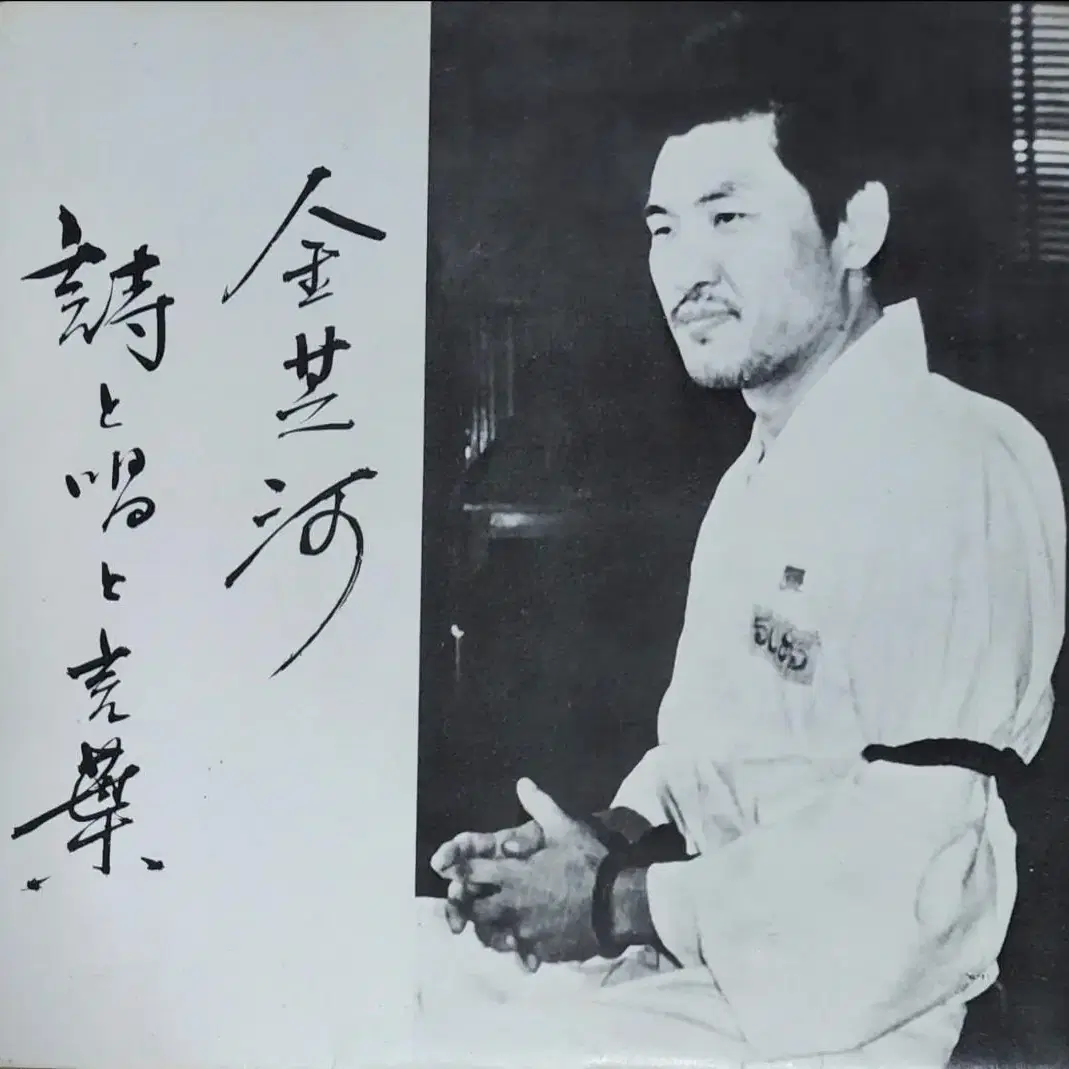 金芝河
詩と唱と言葉
5085